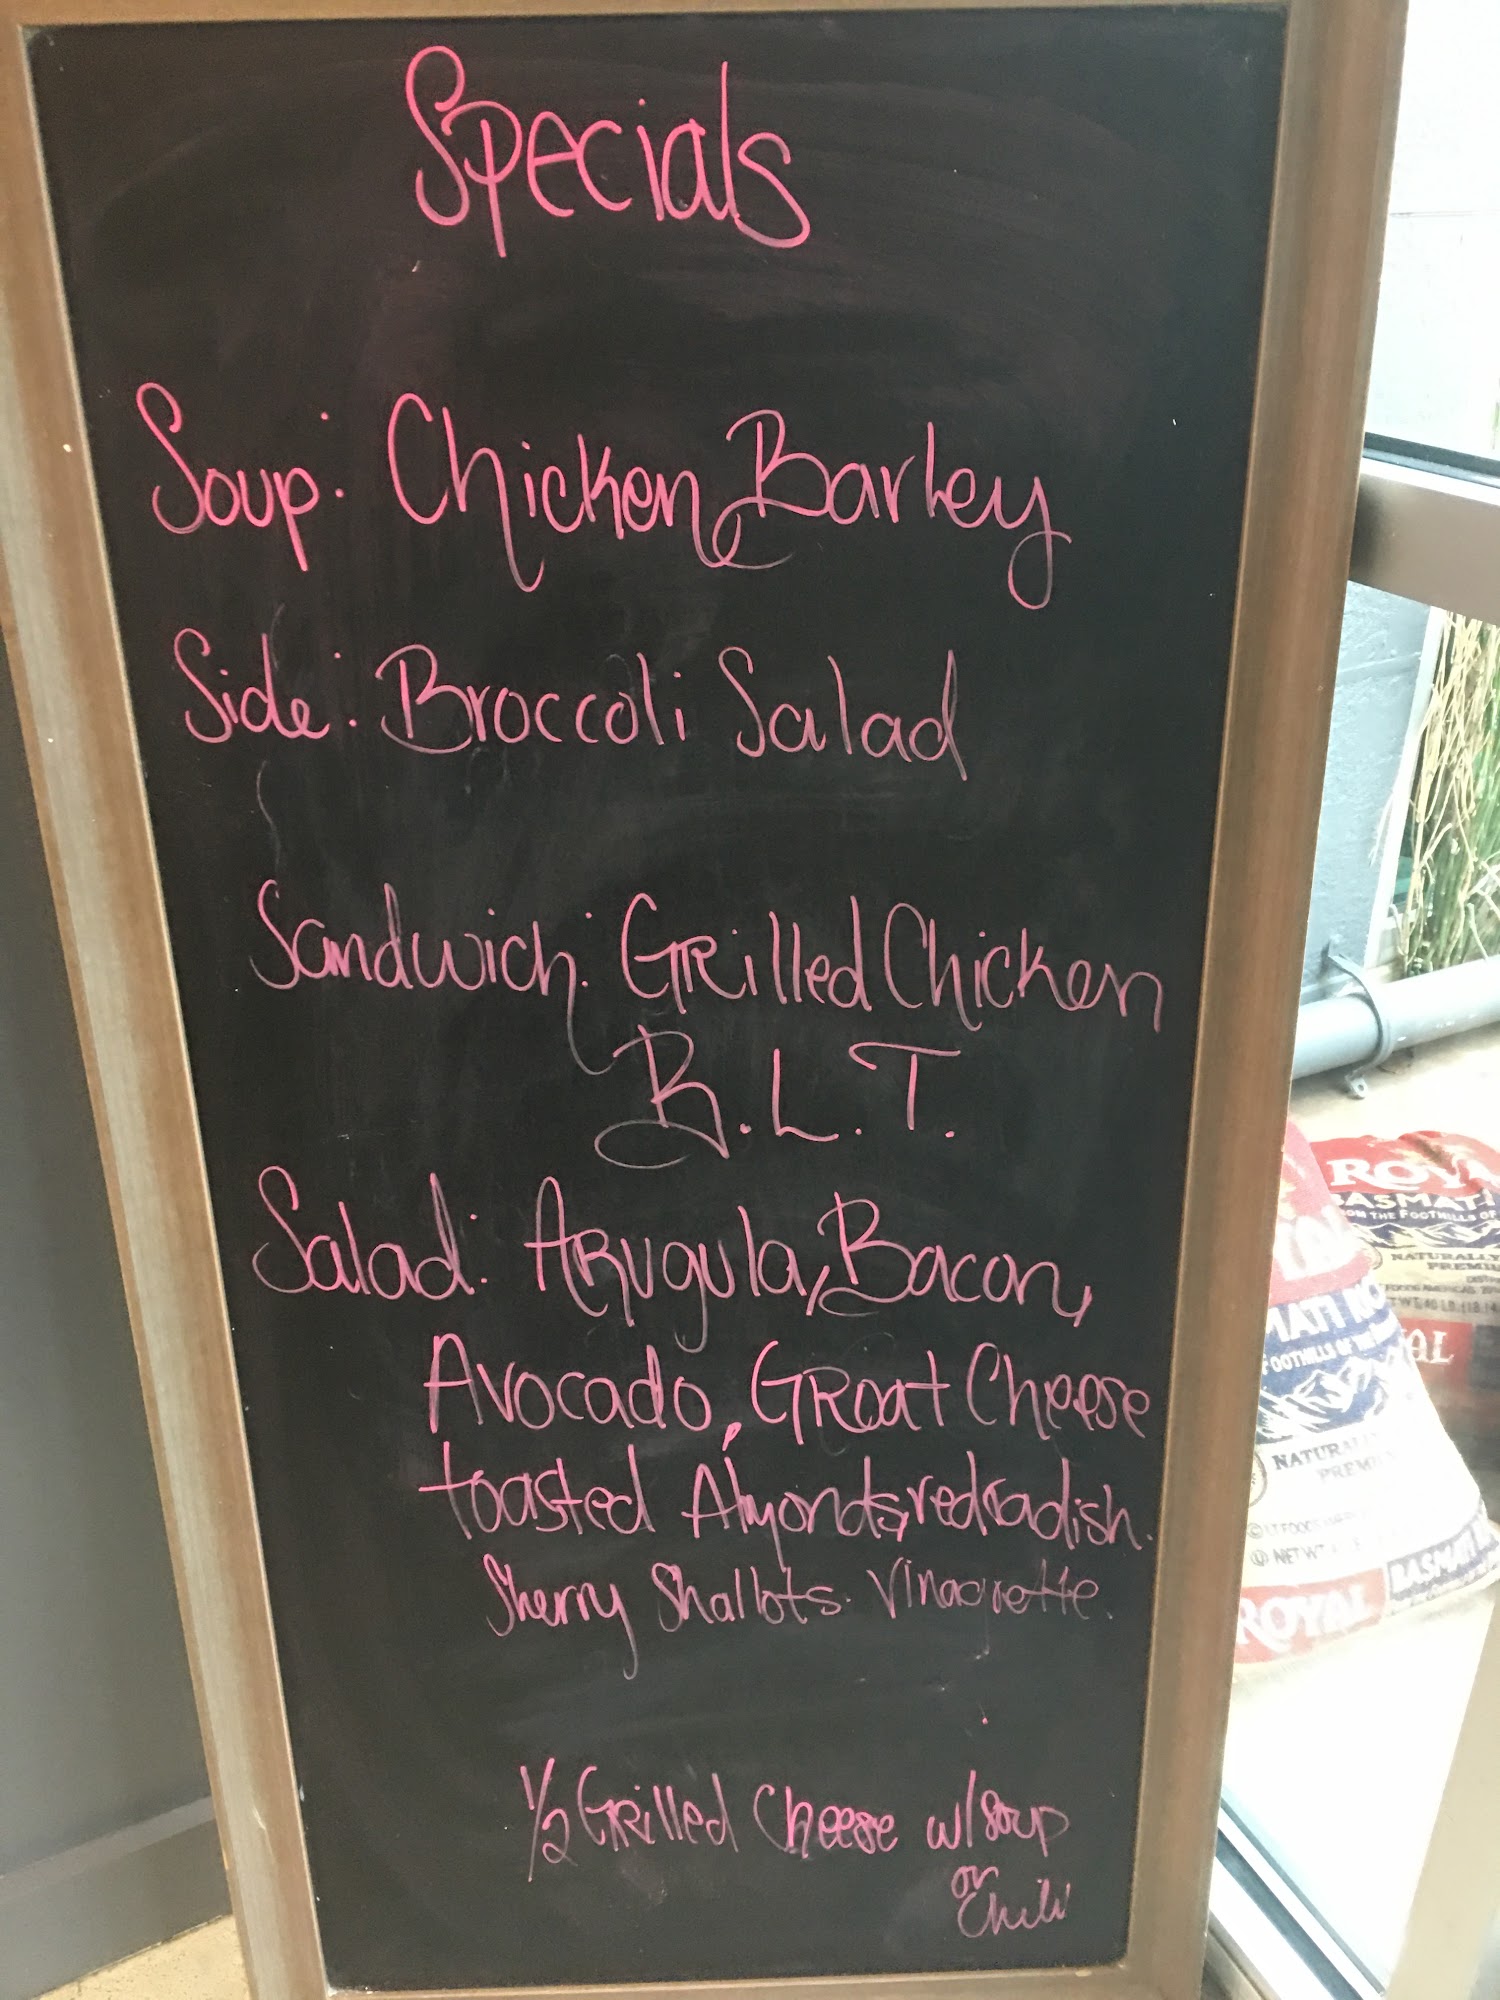 Specials
Soup: Chicken Barley
Side: Broccoli Salad
Sandwich: Grilled Chicken
B.L.T.
Salad: Arugula, Bacon,
Avocado, Groat Cheese
toasted Almonds, red radish.
Sherry Shallots. Vinagrette.
1/2 Grilled Cheese w/ soup
or
Chili
ROYAL
BASMATI
FROM THE FOOTHILLS OF
NATURALLY
PREMIU
ROYAL
BASMATI